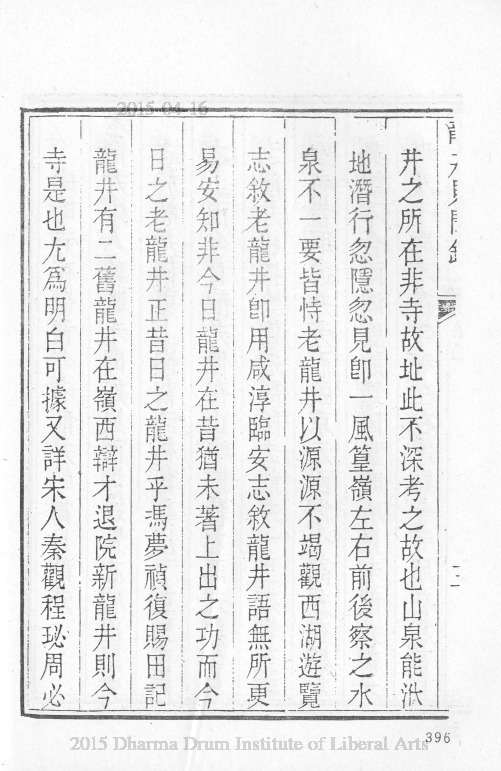 2015-04-16
井之所在非寺故址此不深考之故也山泉能泚
地潛行忽隱忽見卽一風篁嶺左右前後察之水
泉不一要皆恃老龍井以源源不竭觀西湖遊覽
志敘老龍井卽用咸淳臨安志敘龍井語無所更
易安知非今日龍井在昔猶未著上出之功而今
日之老龍井正昔日之龍井乎馮夢禎復賜田記
龍井有二舊龍井在嶺西辯才退院新龍井則今
寺是也尤爲明白可據又詳宋人秦觀程珌周必
396
2015 Dharma Drum Institute of Liberal Arts